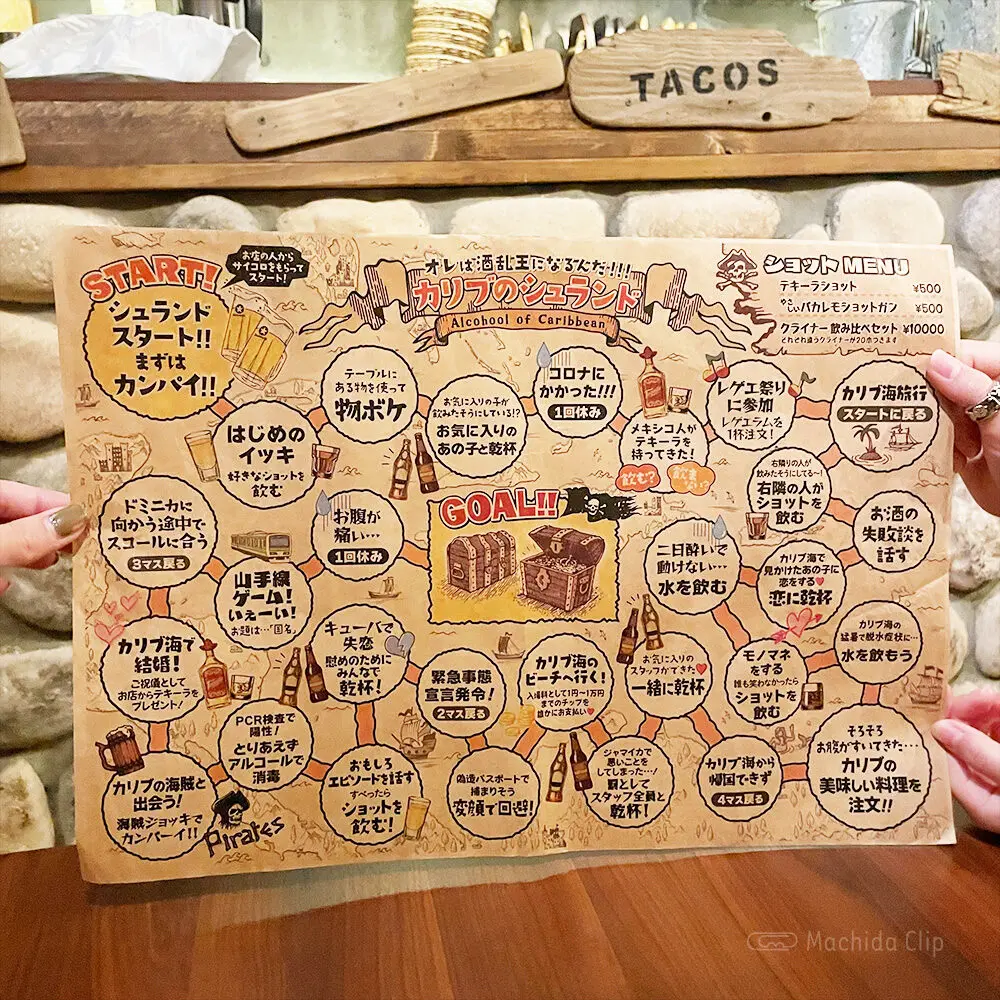 TACOS
START!
お店の人から
サイコロをもらって
スタート!
シュランド
スタート!!
まずは
カンパイ!!
オレは酒乱王になるんだ!!!
カリブのシュランド
Alcohool of Caribbean
ショット MENU
テキーラショット ¥500
やさしいバカレモショットガン ¥500
クライナー飲み比べセット ¥10000
それぞれ違うクライナーが20本つきます
はじめの
イッキ
好きなショットを
飲む
テーブルに
ある物を使って
物ボケ
お気に入りの子が
飲みたそうにしている!?
お気に入りの
あの子と乾杯
コロナに
かかった!!!
1回休み
メキシコ人が
テキーラを
持ってきた!
飲む?
飲まない?
レゲエ祭り
に参加
レゲエラムを
1杯注文!
カリブ海旅行
スタートに戻る
右隣りの人が
飲みたそうにしてる〜!
右隣の人が
ショットを
飲む
お酒の
失敗談を
話す
ドミニカに
向かう途中で
スコールに合う
3マス戻る
お腹が
痛い…
1回休み
山手線
ゲーム!
いぇーい!
お題は…「国名」
GOAL!!
二日酔いで
動けない…
水を飲む
カリブ海で
見かけたあの子に
恋をする
恋に乾杯
カリブ海の
猛暑で脱水症状に…
水を飲もう
カリブ海で
結婚!
ご祝儀として
お店からテキーラを
プレゼント!
キューバで
失恋
慰めのために
みんなで
乾杯!
緊急事態
宣言発令!
2マス戻る
カリブ海の
ビーチへ行く!
入場料として1円〜1万円
までのチップを
誰かにお支払い
お気に入りの
スタッフができた
一緒に乾杯
モノマネ
をする
誰も笑わなかったら
ショットを
飲む
PCR検査で
陽性!
とりあえず
アルコールで
消毒
カリブの海賊と
出会う!
海賊ジョッキで
カンパーイ!!
Pirates
おもしろ
エピソードを話す
すべったら
ショットを
飲む!
偽造パスポートで
捕まりそう
変顔で回避!
ジャマイカで
悪いことを
してしまった…!
罰として
スタッフ全員と
乾杯!
カリブ海から
帰国できず
4マス戻る
そろそろ
お腹がすいてきた…
カリブの
美味しい料理を
注文!!
Machida Clip